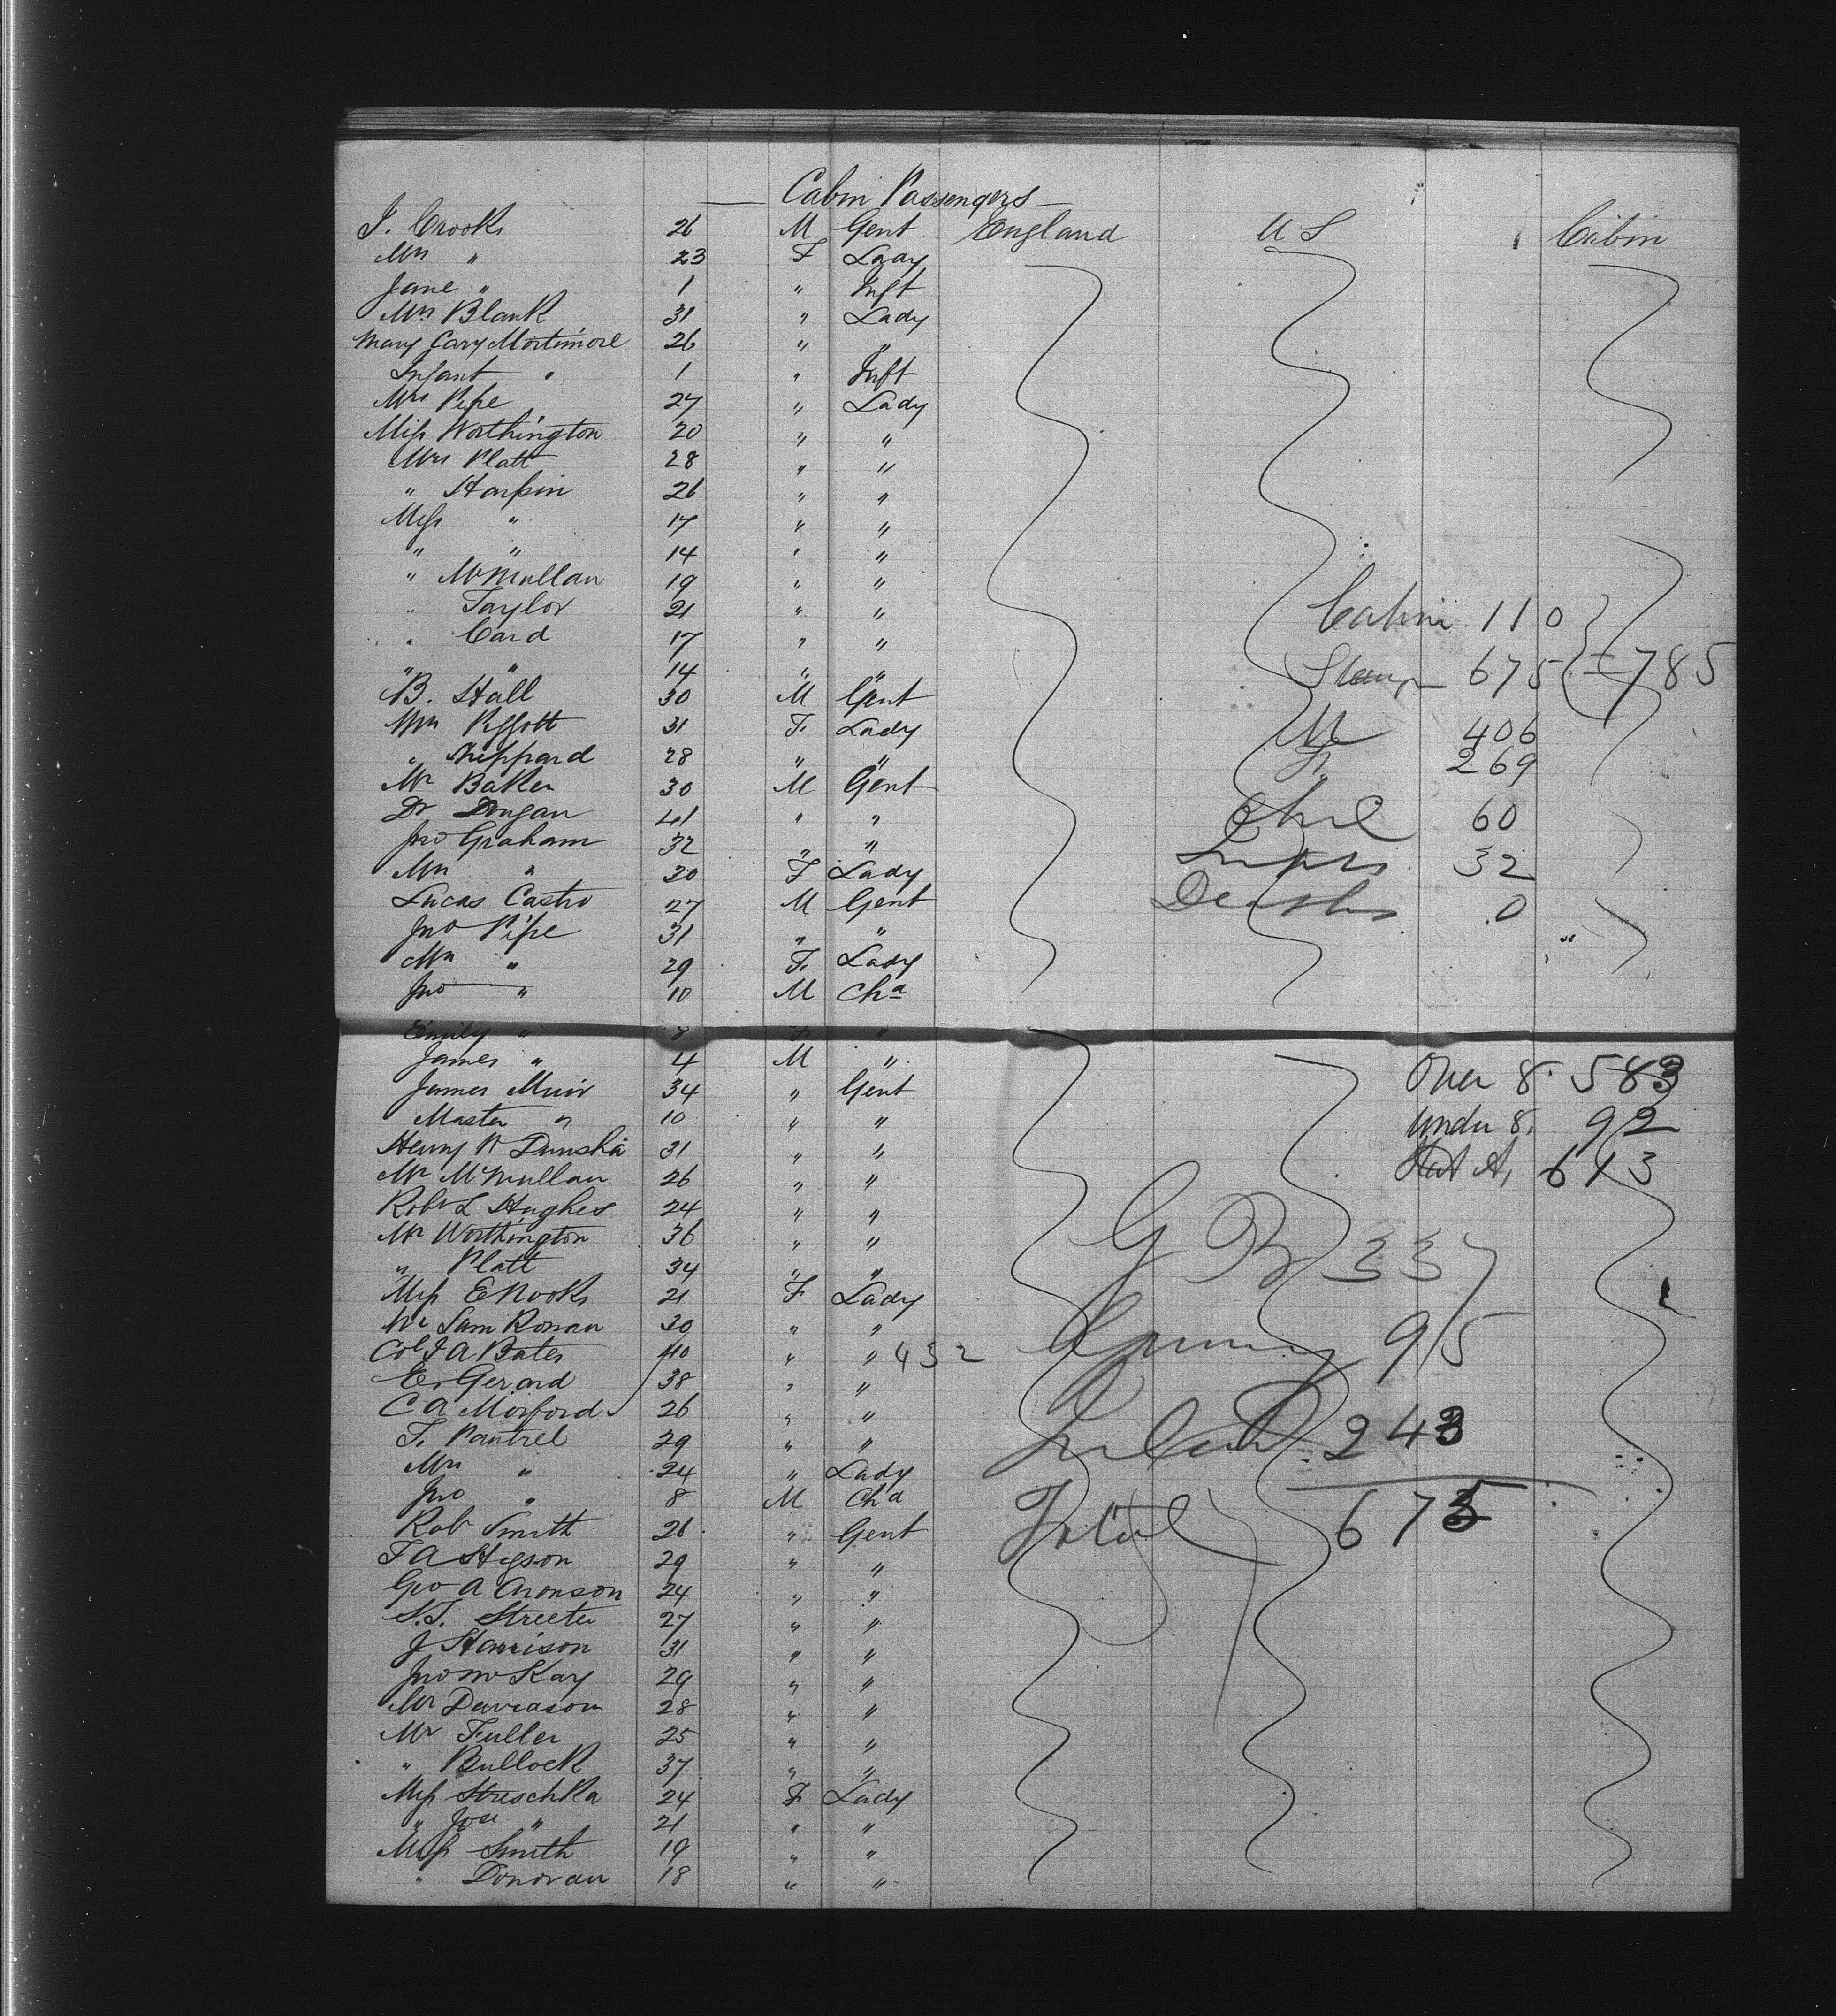 Cabin Passengers
J. Crooks 26 M Gent England U S 1 Cabin
Mrs " 23 F Lady
Jane " 1 " Inft
Mrs Blank 31 " Lady
Mary Cary Mortimore 26 " "
Infant " 1 " Inft
Mrs Pipe 27 " Lady
Miss Worthington 20 " "
Mrs Platt 28 " "
" Harpin 26 " "
Miss " 17 " "
" " 14 " "
" McMullan 19 " "
" Taylor 21 " " Cabin 110
" Card 17 " "
" " 14 " " Steerage 675 = 785
B. Hall 30 M Gent
Mrs Piggott 31 F Lady M 406
" Sheppard 28 " " F 269
Mr Baker 30 M Gent
Dr Dougan 41 " " Chil 60
Jno Graham 32 " "
Mrs " 30 F Lady Infts 32
Lucas Castro 27 M Gent Deaths 0
Jno Pipe 31 " "
Mrs " 29 F Lady
Jno " 10 M Chd
Emily " 8 F "
James " 4 M " Over 8. 583
James Muir 34 " Gent
Master " 10 " " Under 8. 92
Henry 31 " "
Mr McMullan 26 " " Stat A, 613
Robt L Hughes 24 " "
Mr Worthington 36 " " G B 337
" Platt 34 " "
Miss E Nooks 21 F Lady
Mr Sam Ronan 30 " "
Col J A Bates 40 " " 432 Germany 95
E. Gerard 38 " "
C A Morford 26 " "
T. Pantrel 29 " " Ireland 243
Mrs " 24 " Lady
Jno " 8 M Chd
Robt Smith 26 " Gent Total 675
T A Hyson 29 " "
Geo A Aronson 24 " "
S. T. Streeter 27 " "
J Harrison 31 " "
Jno McKay 29 " "
Mr Davidson 28 " "
Mr Fuller 25 " "
" Bullock 37 " "
Miss Streschka 24 F Lady
" Jose " 21 " "
Miss Smith 19 " "
" Donovan 18 " "